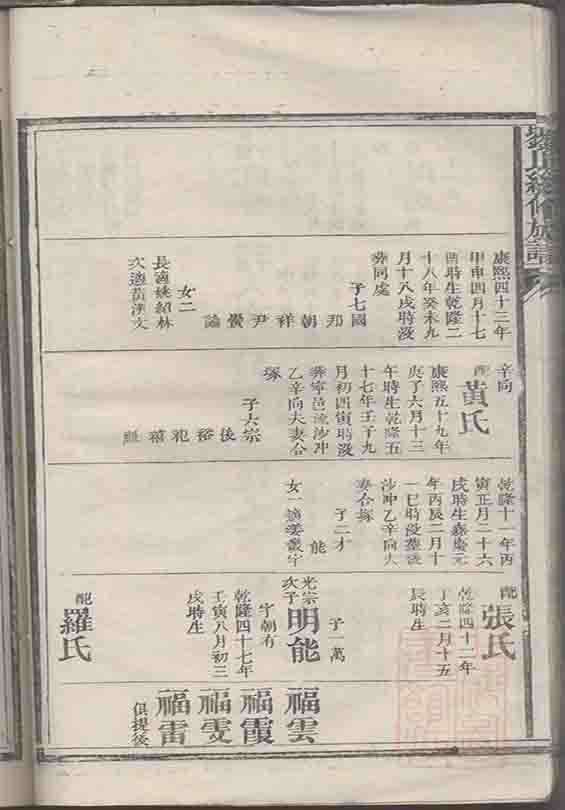 康熙四十三年
甲申四月十七
酉時生乾隆二
十八年癸未九
月十八戌時沒
葬同處
子七國
邦
朝
祥
尹
黌
論
女二
長適姚紹林
次適黃漢文
辛向
配黃氏
康熙五十九年
庚子六月十三
午時生乾隆五
十七年壬子九
月初四寅時沒
葬寧邑流沙冲
乙辛向夫妻合
塚
子六宗
後
裕
祀
禧
乾隆十一年丙
寅正月二十六
戌時生嘉慶元
年丙辰二月十
一巳時沒葬流
沙冲乙辛向夫
妻合塚
子二才
能
女一適姜
配張氏
乾隆四十二年
丁亥二月十五
辰時生
子一萬
光宗次子明能
字朝有
乾隆四十七年
壬寅八月初三
戌時生
配羅氏
福雲
福霞
福雯
福雷
俱提後